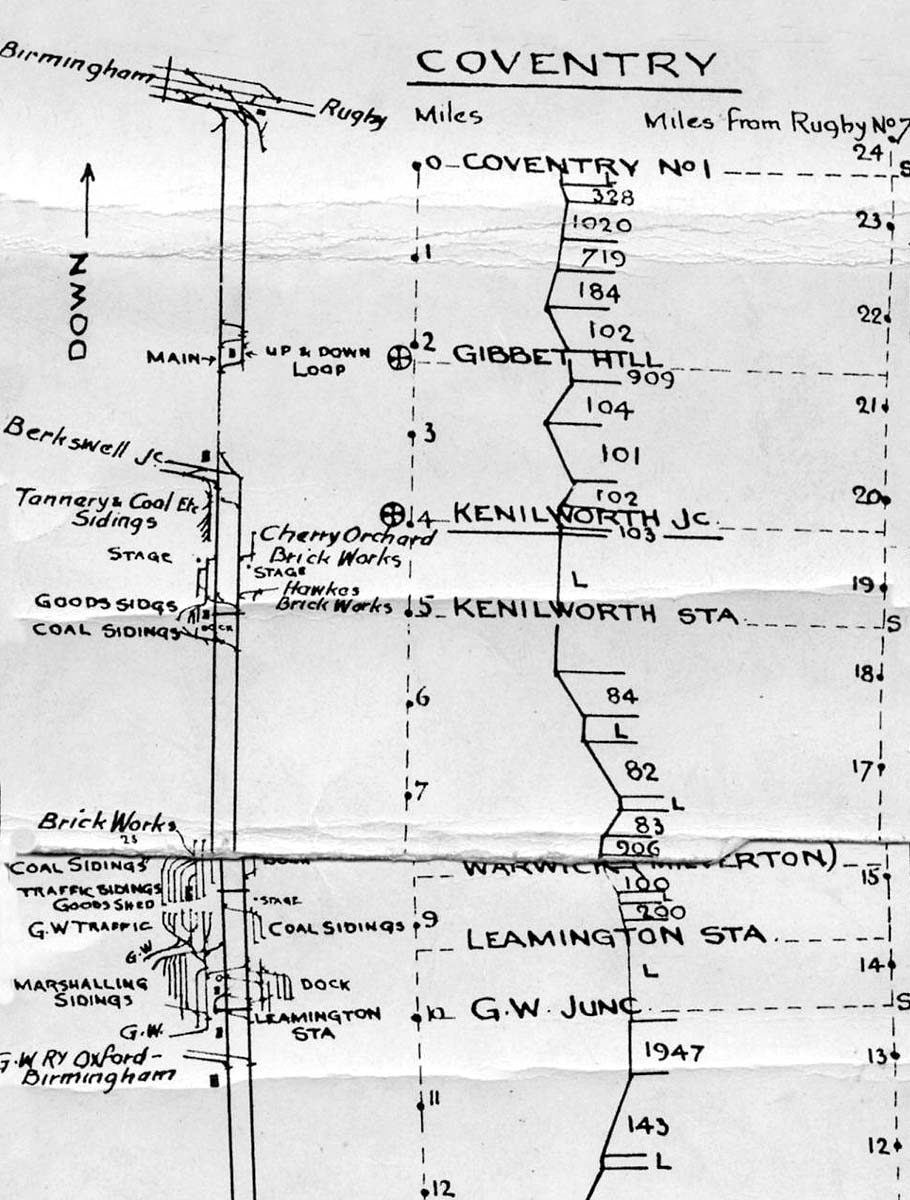 COVENTRY
Birmingham
Rugby
Miles
Miles from Rugby No 7
24
0 COVENTRY No 1
S
L
328
1020
23
719
1
184
DOWN
102
22
2
MAIN
UP & DOWN
LOOP
GIBBET HILL
909
104
21
3
101
Berkswell Jc.
102
20
Tannery & Coal Etc
Sidings
4 KENILWORTH Jc.
103
Cherry Orchard
Brick Works
STAGE
STAGE
L
19
Hawkes
Brick Works
GOODS SIDGS
5 KENILWORTH STA.
S
DOCK
COAL SIDINGS
18
84
6
L
82
17
7
L
Brick Works
83
906
COAL SIDINGS
DOWN
WARWICK (MILVERTON)
15
TRAFFIC SIDINGS
100
GOODS SHED
STAGE
L
200
G.W TRAFFIC
COAL SIDINGS
9
LEAMINGTON STA.
G.W
14
L
MARSHALLING
SIDINGS
DOCK
10 G.W. JUNC.
S
LEAMINGTON
STA
G.W.
1947
13
G.W RY Oxford-
Birmingham
11
143
12
L
12